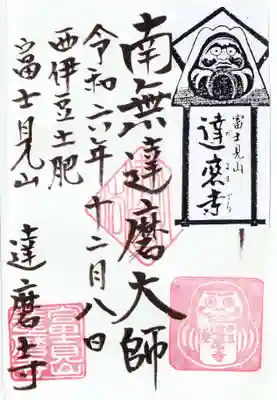 富士見山
達磨寺
南無達磨大師
令和六年十二月八日
西伊豆土肥
富士見山 達磨寺
富士見山